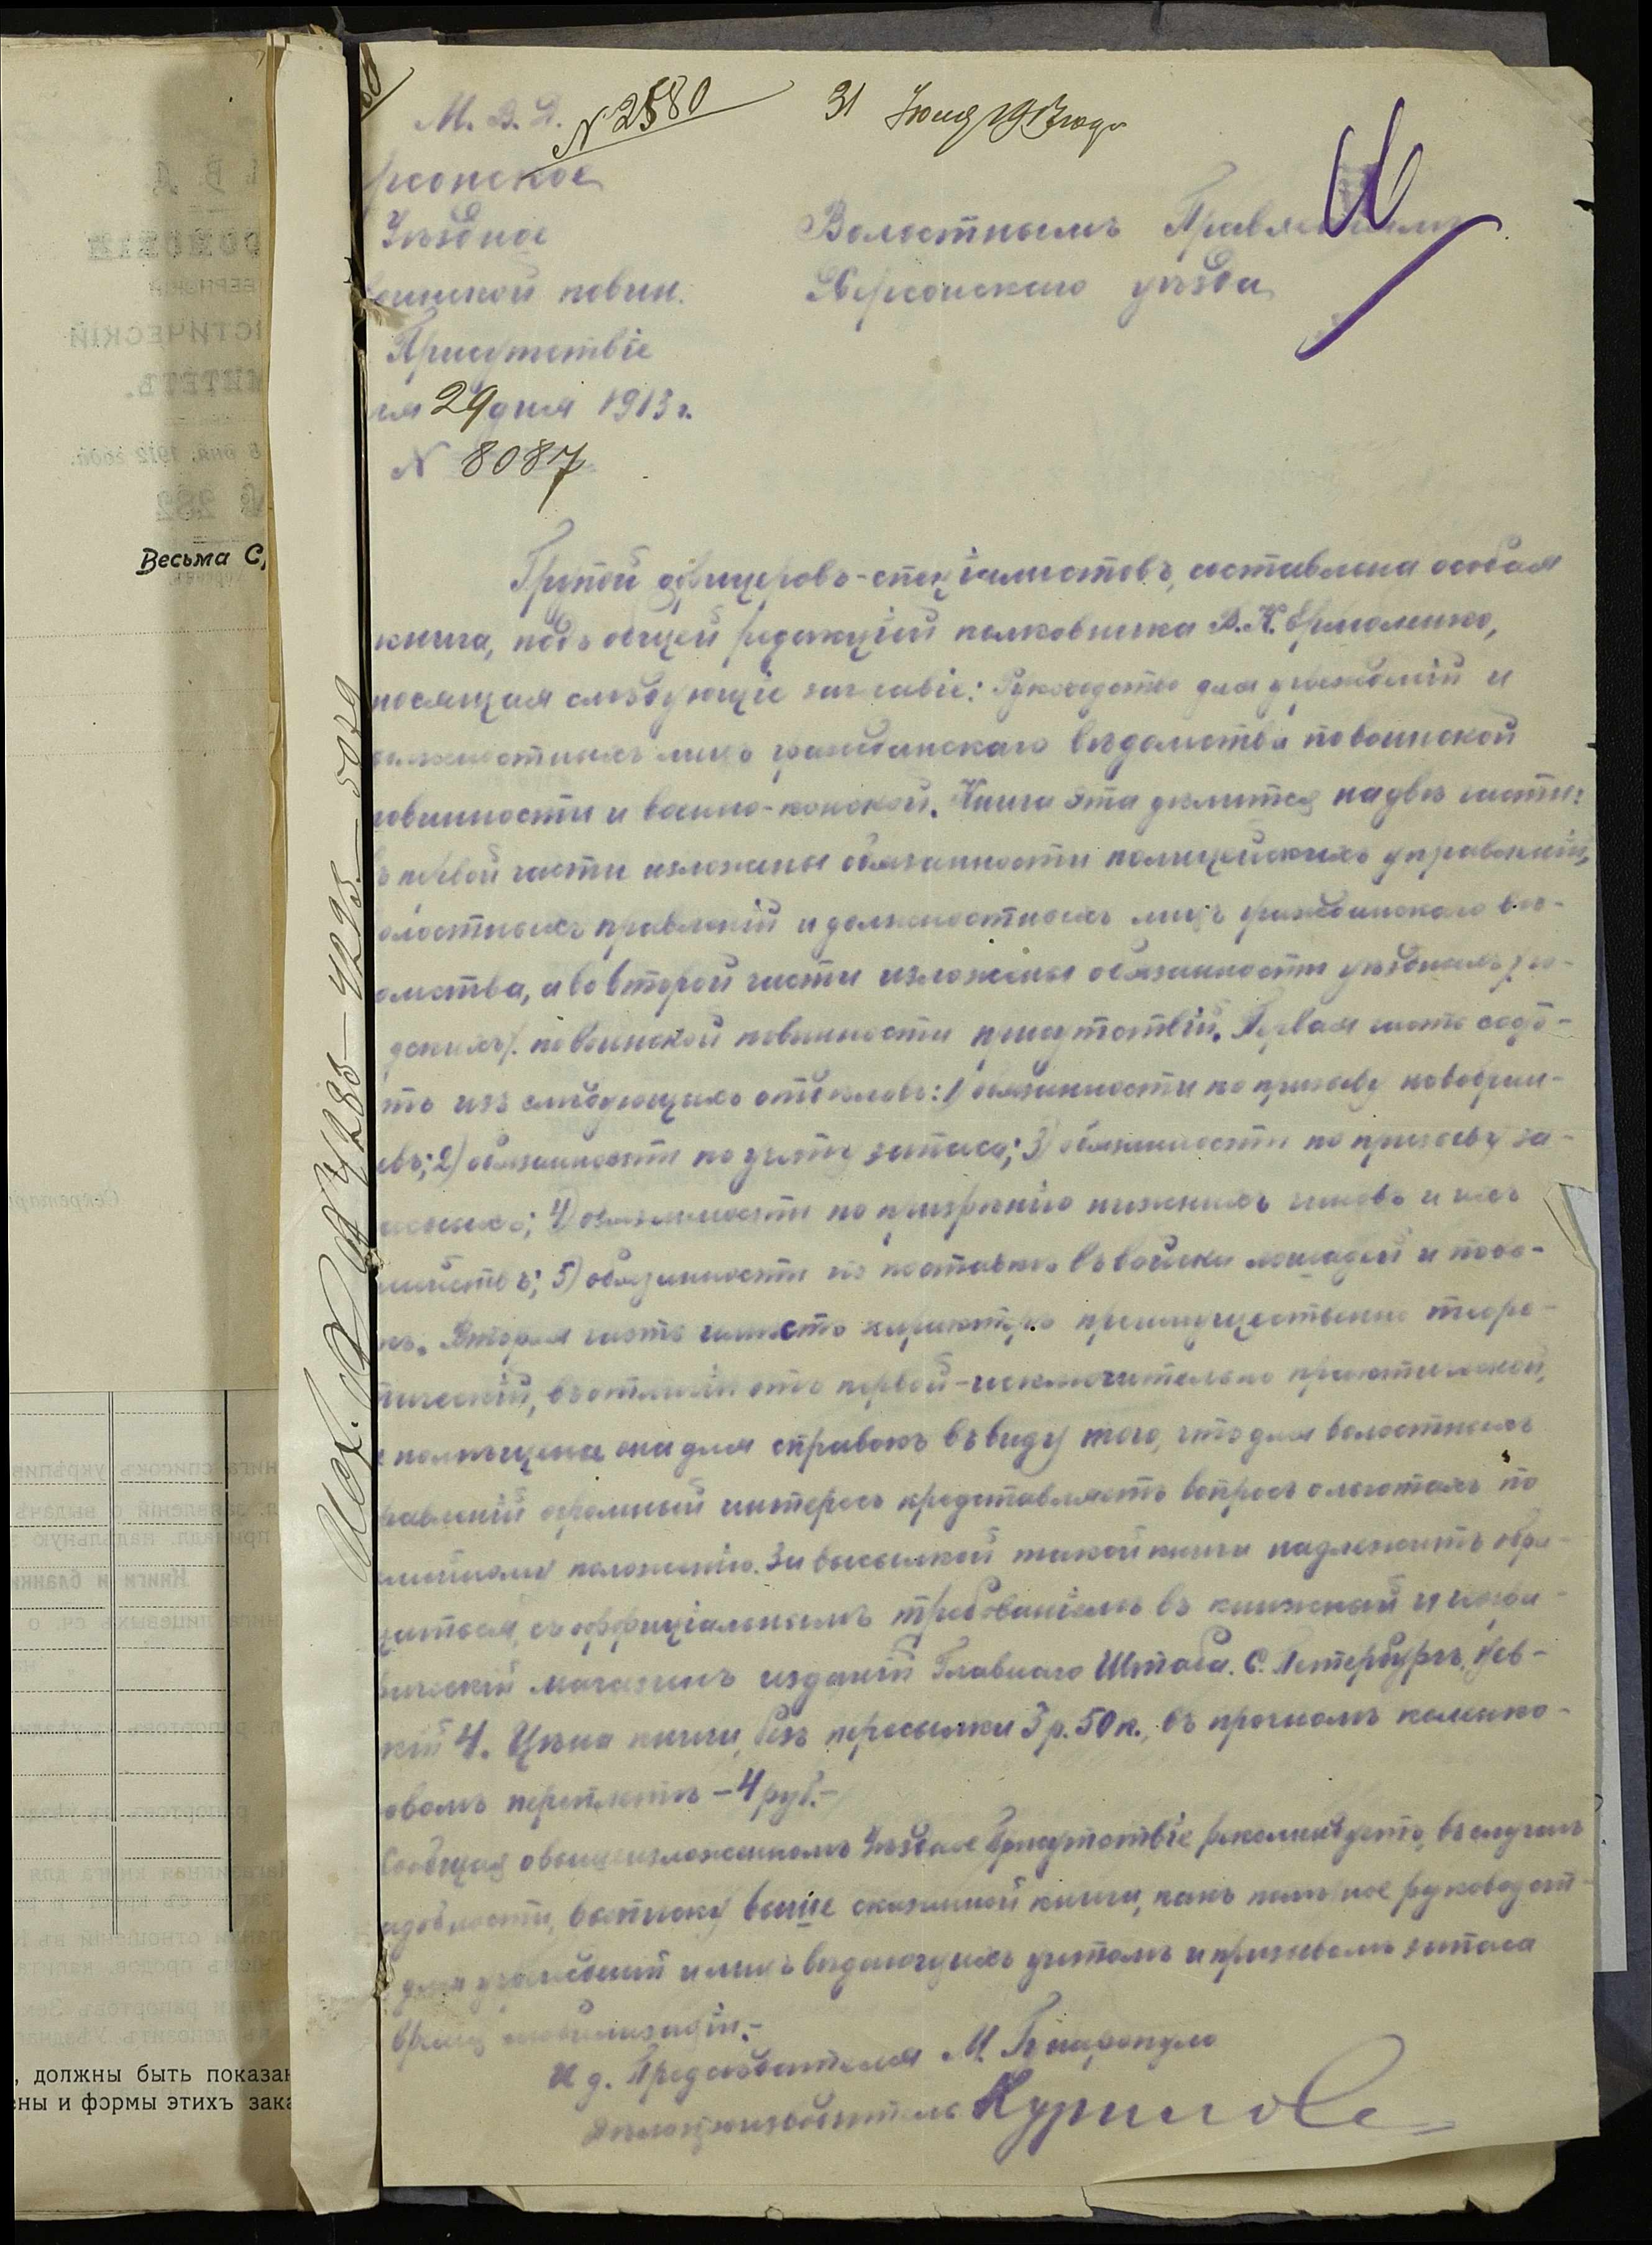 М. В. Д.
№ 2580
31 Июля 1913 года
рсонское
Уѣздное
Волостнымъ Правленіямъ
оинской повин.
Херсонскаго уѣзда
Присутствіе
ля 29 дня 1913 г.
№ 8087
Групой офицеровъ-спеціалистовъ, составлена особая
книга, подъ общей редакціей полковника В. К. Ермоленко,
носящая слѣдующіе заглавіе: Руководство для учрежденій и
олжностныхъ лицъ гражданскаго вѣдомства по воинской
овинности и военно-конской. Книга эта дѣлится на двѣ части:
ъ первой части изложены обязанности полицейскихъ управленій,
олостныхъ правленій и должностныхъ лицъ гражданскаго вѣ-
омства, а во второй части изложены обязанности уѣздныхъ /го-
дскихъ/ по воинской повинности присутствій. Первая часть состо-
тъ изъ слѣдующихъ отдѣловъ: 1) обязанности по призыву новобран-
евъ; 2) обязанности по учету запаса; 3) обязанности по призыву за-
асныхъ; 4) обязанности по призрѣнію нижнихъ чиновъ и ихъ
емействъ; 5) обязанности по поставкѣ въ войска лошадей и пово-
къ. Вторая часть имѣетъ характеръ преимущественно теоре-
тическій, въ отличіи отъ первой - исключительно практической,
и помѣщена она для справокъ въ виду того, что для волостныхъ
равленій огромный интересъ представляетъ вопросъ о льготахъ по
емейному положенію. За высылкой такой книги надлежитъ обра-
щаться, съ оффиціальнымъ требованіемъ въ книжный и геогра-
фическій магазинъ изданій Главнаго Штаба. С. Петербургъ, Нев-
кій 4. Цѣна книги, безъ пересылки 3 р. 50 к., въ прочномъ коленко-
овомъ переплетѣ - 4 руб. -
Сообщая о вышеизложенномъ Уѣздное Присутствіе рекомендуетъ, въ случаѣ
адобности, выписку выше сказанной книги, какъ полезное руководст-
для учрежденій и лицъ вѣдающихъ учетомъ и призывомъ запаса
время мобилизаціи. -
И д. Предсѣдателя М.
Дѣлопроизводитель Куриловъ
4285 - 4295 - 5029
Весьма С,
, должны быть показан
ены и формы этихъ зака